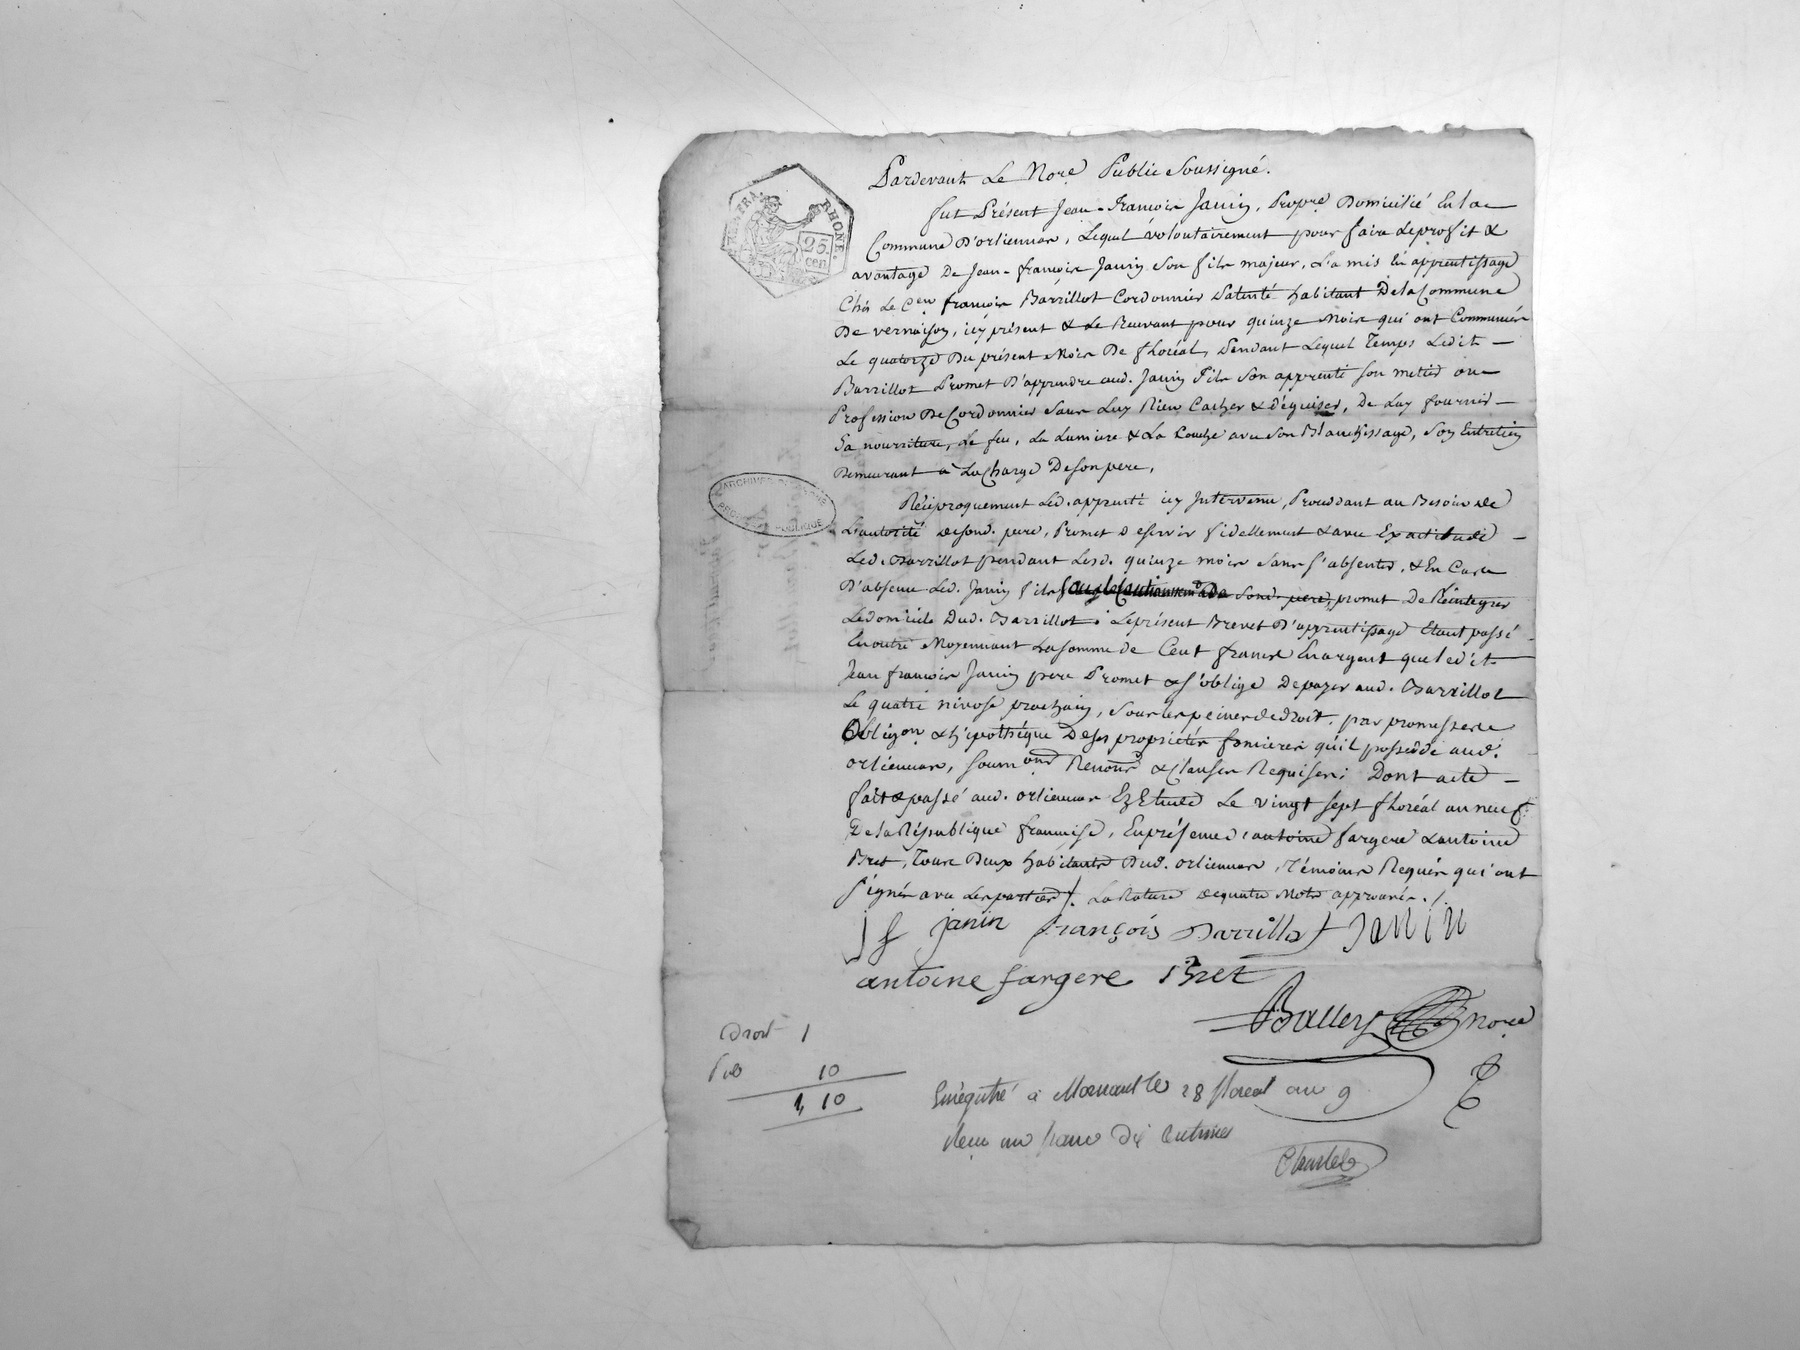 Pardevant Le Nore Public Soussigné.
fut Présent Jean-francois Janin, Propre Domicilié En la
Commune D'orlienas, Lequel volontairement pour faire Le profit &
avantage De Jean-francois Janin Son fils majeur, L'a mis En apprentissage
Chés Le Cen francois Barrillot Cordonnier Patenté habitant De la Commune
De vernaison, icy présent & Le Recevant pour quinze Mois qui ont Commencés
Le quatorze Du présent Mois De floréal, Pendant Lequel Temps Ledit
Barrillot Promet D'apprendre aud. Janin Fils Son apprenti Son metier ou
Profession De Cordonnier Sans Luy Rien Cacher & déguiser, De Luy fournir
Sa nourriture, Le feu, La Lumiere & La Couche avec Son Blanchissage, Son Entretien
Demeurant à La Charge De Son pere.
Réciproquement Led. apprenti icy Intervenu, Procedant au Besoin de
L'autorité de Sond. pere, Promet De Servir fidellement & avec Exactitude
Led. Barrillot pendant Lesd. quinze mois Sans s'absenter, & En Cas
D'absence Led. Janin fils Sous le Cautionnemt De Sond. pere, promet De Réintegrer
Le domicile Dud. Barrillot. Le présent Brevet D'apprentissage Etant passé
En outre Moyennant La Somme de Cent francs En argent que ledit
Jean francois Janin pere Promet & s'oblige De payer aud. Barrillot
Le quatre nivose prochain, Sous les peines de droit, par promesse
Obligon & hipothéque De Ses propriétés foncieres qu'il possede aud.
orliénas, Soumons Renons & Clauses Requises; Dont acte
fait & passé aud. orlienas Ez Etude Le vingt Sept floréal an neuf
De la République francaise, En présence d'antoine fargere & antoine
Bret, Tous Deux habitants Dud. orlienas, Témoins Requis qui ont
signés avec Les parties. La Rature de quatre Mots approuvée./.
j f janin françois Barrillot janin
antoine fargere Bret
Ballery Nore
Droit 1
Sub 10
1, 10
Enregistré à Mornant le 28 floreal an 9
Reçu un franc dix centimes
RHONE.
25 cen
ARCHIVES DU RHONE
PROPRIÉTÉ PUBLIQUE